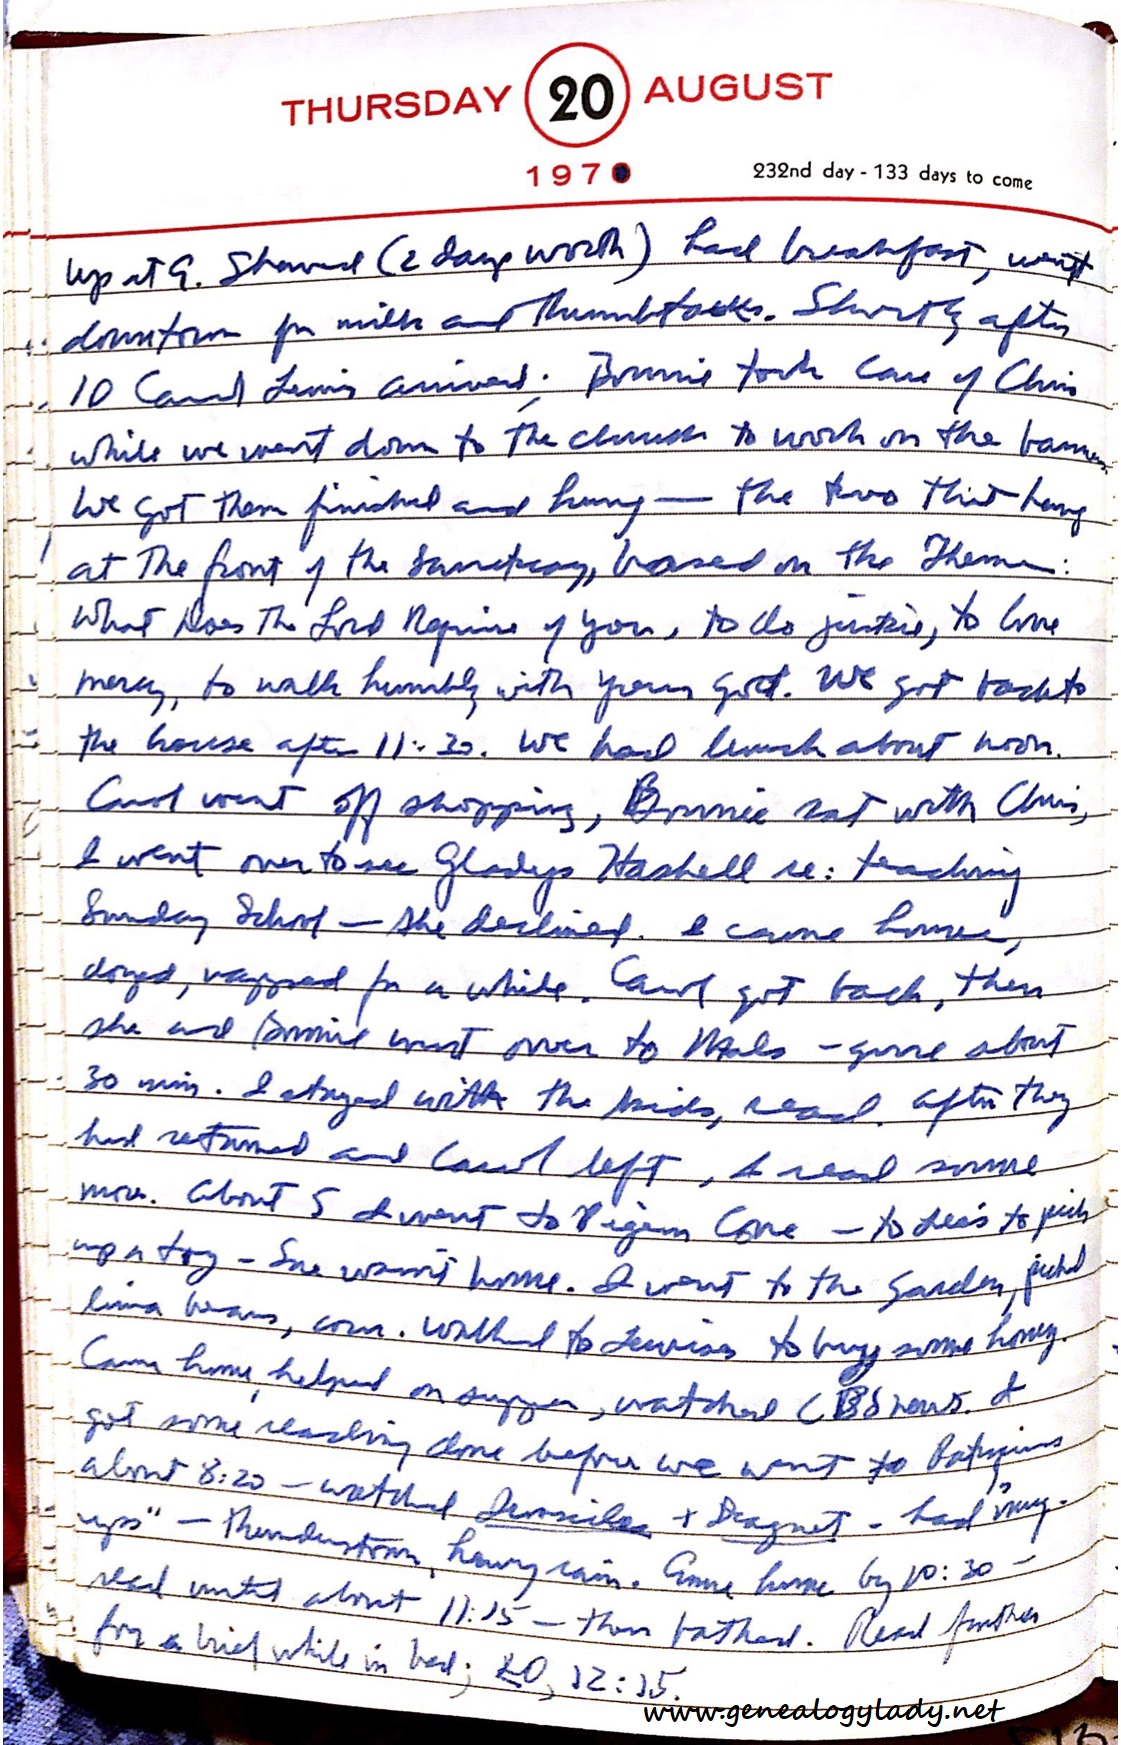 THURSDAY 20 AUGUST
1970
232nd day - 133 days to come
Up at 9. Shaved (2 days worth) had breakfast, went
downtown for milk and thumbtacks. Shortly after
10 Carol Lewis arrived. Bonnie took care of Chris
while we went down to the church to work on the banners.
We got them finished and hung — the two that hang
at the front of the sanctuary, based on the theme:
What Does The Lord Require of you, to do justice, to love
mercy, to walk humbly with your God. We got back to
the house after 11:30. We had lunch about noon.
Carol went off shopping, Bonnie sat with Chris,
I went over to see Gladys Haskell re: teaching
Sunday School — she declined. I came home,
dozed, napped for a while. Carol got back, then
she and Bonnie went over to — gone about
30 min. I stayed with the kids, read. After they
had returned and Carol left, I read some
more. About 5 I went to Pigeon Cove — to Lee's to pick
up a toy — She wasn't home. I went to the garden, picked
lima beans, corn. Walked to Lewises to buy some honey.
Came home, helped on supper, watched CBS news. I
got some reading done before we went to
about 8:20 — watched + Dragnet — had "my-
ups" — thunderstorm, heavy rain. Came home by 10:30 —
read until about 11:15 — then bathed. Read further
for a brief while in bed; LO, 12:15.
www.genealogylady.net